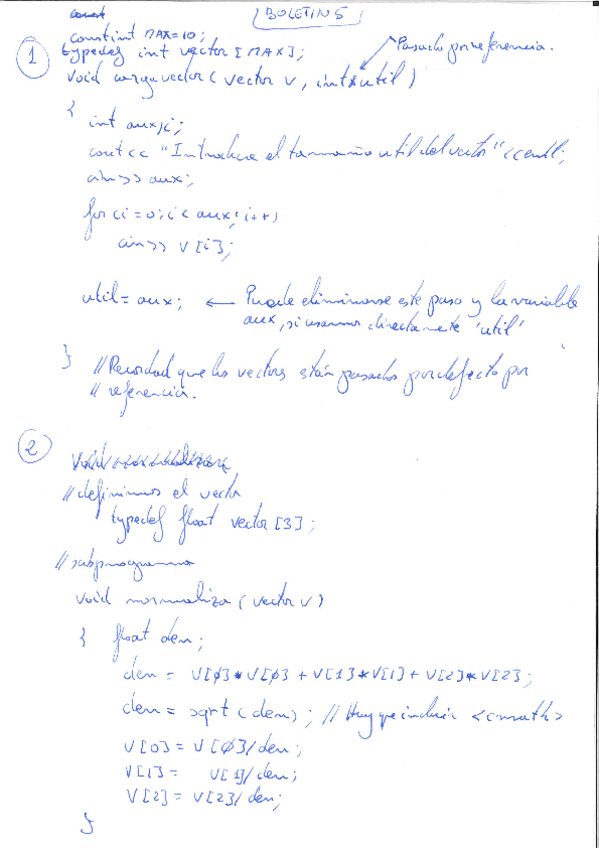 BOLETIN 5
const int MAX=10;
typedef int vector [MAX];
Pasado por referencia.
1
void carga vector ( vector v, int & util )
{
int aux, i;
cout << "Introduce el tamaño util del vector" << endl;
cin >> aux;
for (i=0; i< aux; i++)
cin >> v[i];
util = aux; ← Puede eliminarse este paso y la variable
aux, si usamos directamente 'util'
} // Recordad que los vectores están pasados por defecto por
// referencia.
2
// definimos el vector
typedef float vector [3];
// subprograma
void normaliza ( vector v )
{ float den;
den = v[0]*v[0] + v[1]*v[1] + v[2]*v[2];
den = sqrt (den); // Hay que incluir <cmath>
v[0] = v[0]/den;
v[1] = v[1]/den;
v[2] = v[2]/den;
}